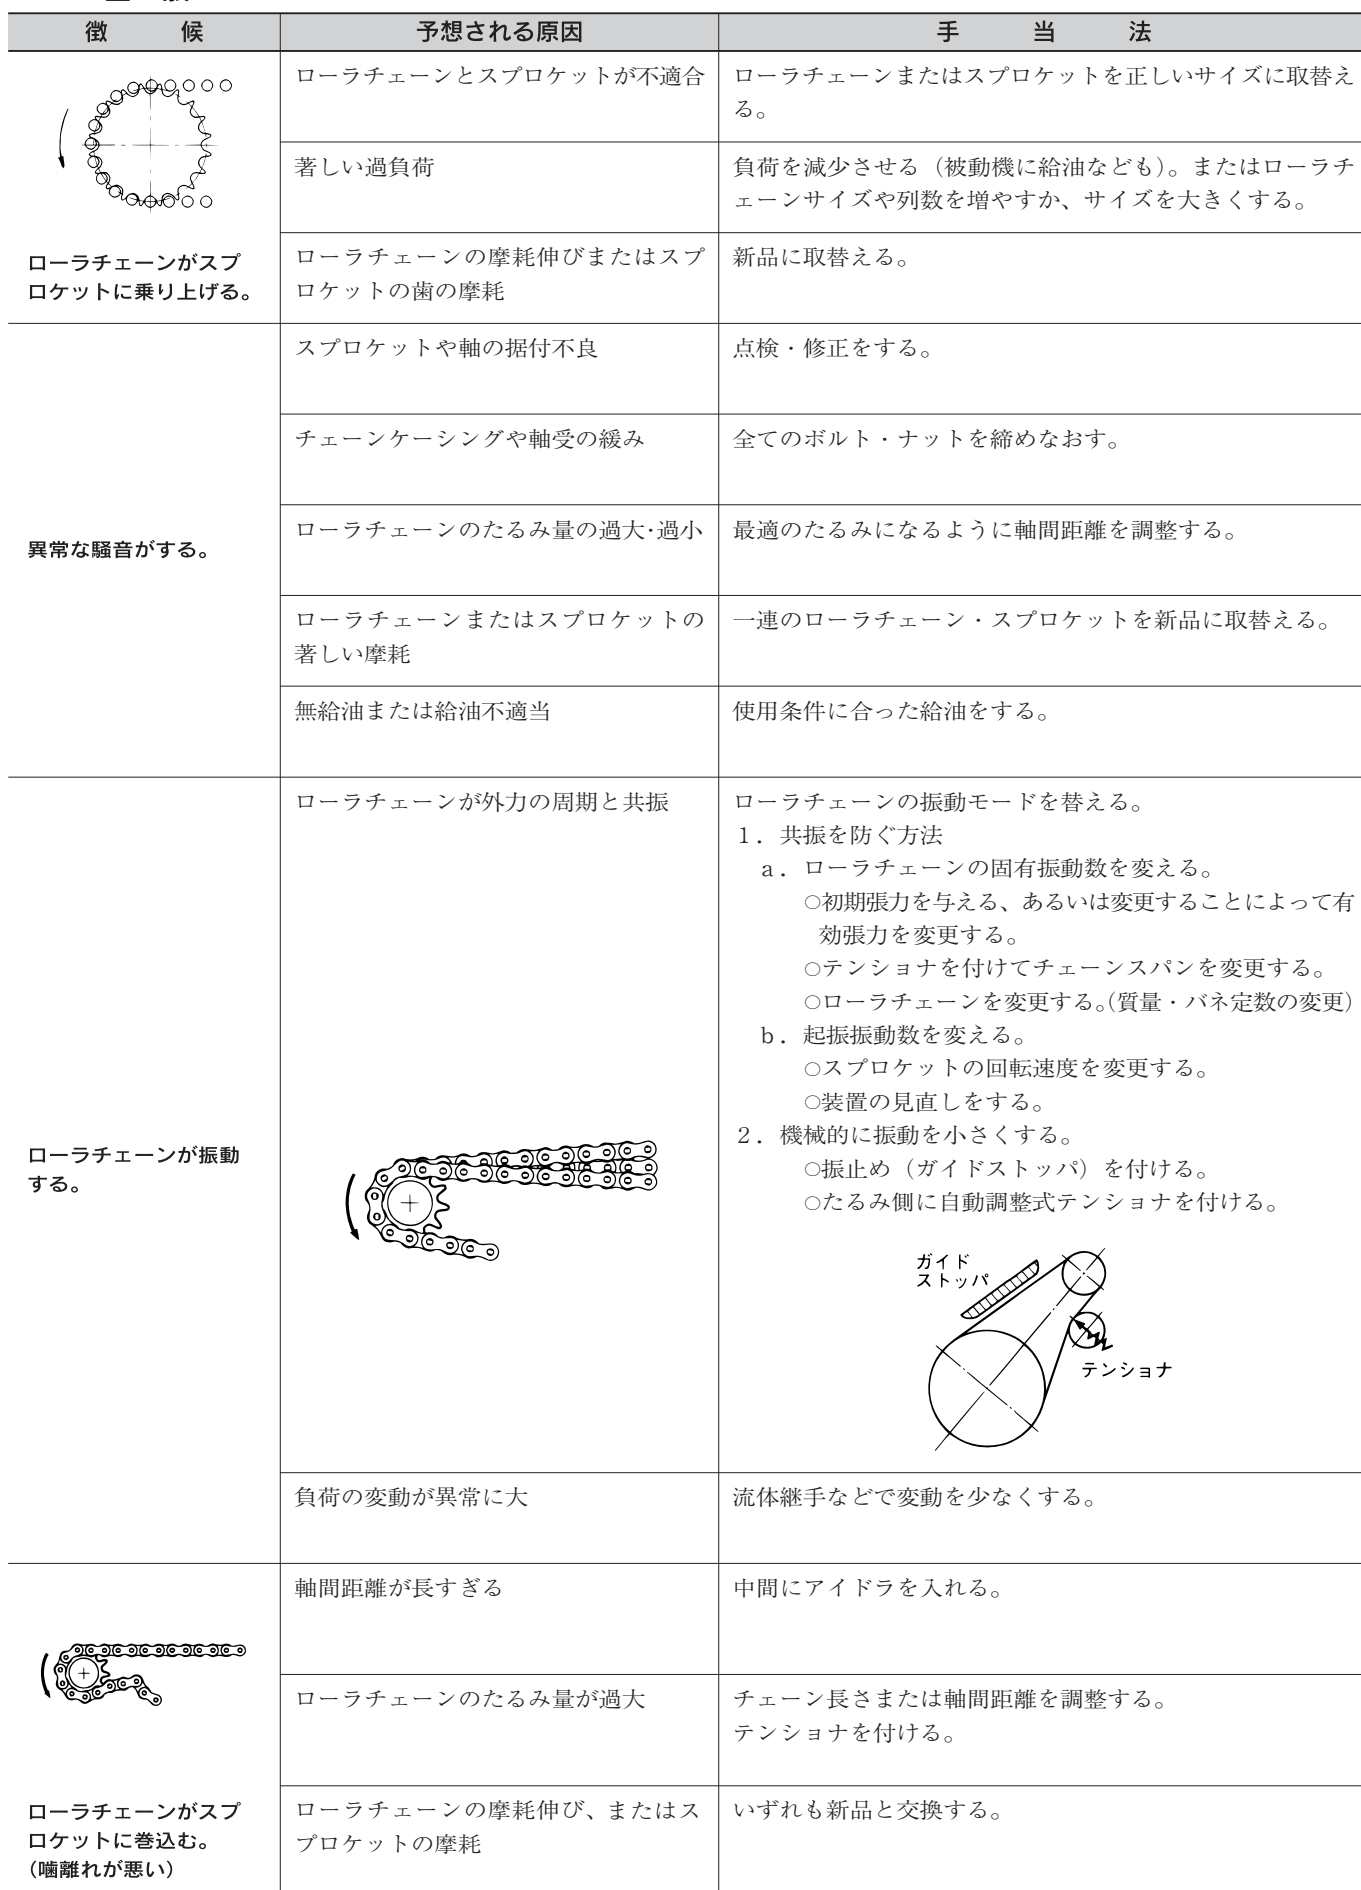 徴候 予想される原因 手当法
ローラチェーンがスプ
ロケットに乗り上げる。
ローラチェーンとスプロケットが不適合
ローラチェーンまたはスプロケットを正しいサイズに取替え
る。
著しい過負荷
負荷を減少させる（被動機に給油なども）。またはローラチ
ェーンサイズや列数を増やすか、サイズを大きくする。
ローラチェーンの摩耗伸びまたはスプ
ロケットの歯の摩耗
新品に取替える。
異常な騒音がする。
スプロケットや軸の据付不良
点検・修正をする。
チェーンケーシングや軸受の緩み
全てのボルト・ナットを締めなおす。
ローラチェーンのたるみ量の過大・過小
最適のたるみになるように軸間距離を調整する。
ローラチェーンまたはスプロケットの
著しい摩耗
一連のローラチェーン・スプロケットを新品に取替える。
無給油または給油不適当
使用条件に合った給油をする。
ローラチェーンが振動
する。
ローラチェーンが外力の周期と共振
ローラチェーンの振動モードを替える。
１．共振を防ぐ方法
ａ．ローラチェーンの固有振動数を変える。
○初期張力を与える、あるいは変更することによって有
効張力を変更する。
○テンショナを付けてチェーンスパンを変更する。
○ローラチェーンを変更する。（質量・バネ定数の変更）
ｂ．起振振動数を変える。
○スプロケットの回転速度を変更する。
○装置の見直しをする。
２．機械的に振動を小さくする。
○振止め（ガイドストッパ）を付ける。
○たるみ側に自動調整式テンショナを付ける。
ガイド
ストッパ
テンショナ
負荷の変動が異常に大
流体継手などで変動を少なくする。
ローラチェーンがスプ
ロケットに巻込む。
（噛離れが悪い）
軸間距離が長すぎる
中間にアイドラを入れる。
ローラチェーンのたるみ量が過大
チェーン長さまたは軸間距離を調整する。
テンショナを付ける。
ローラチェーンの摩耗伸び、またはス
プロケットの摩耗
いずれも新品と交換する。